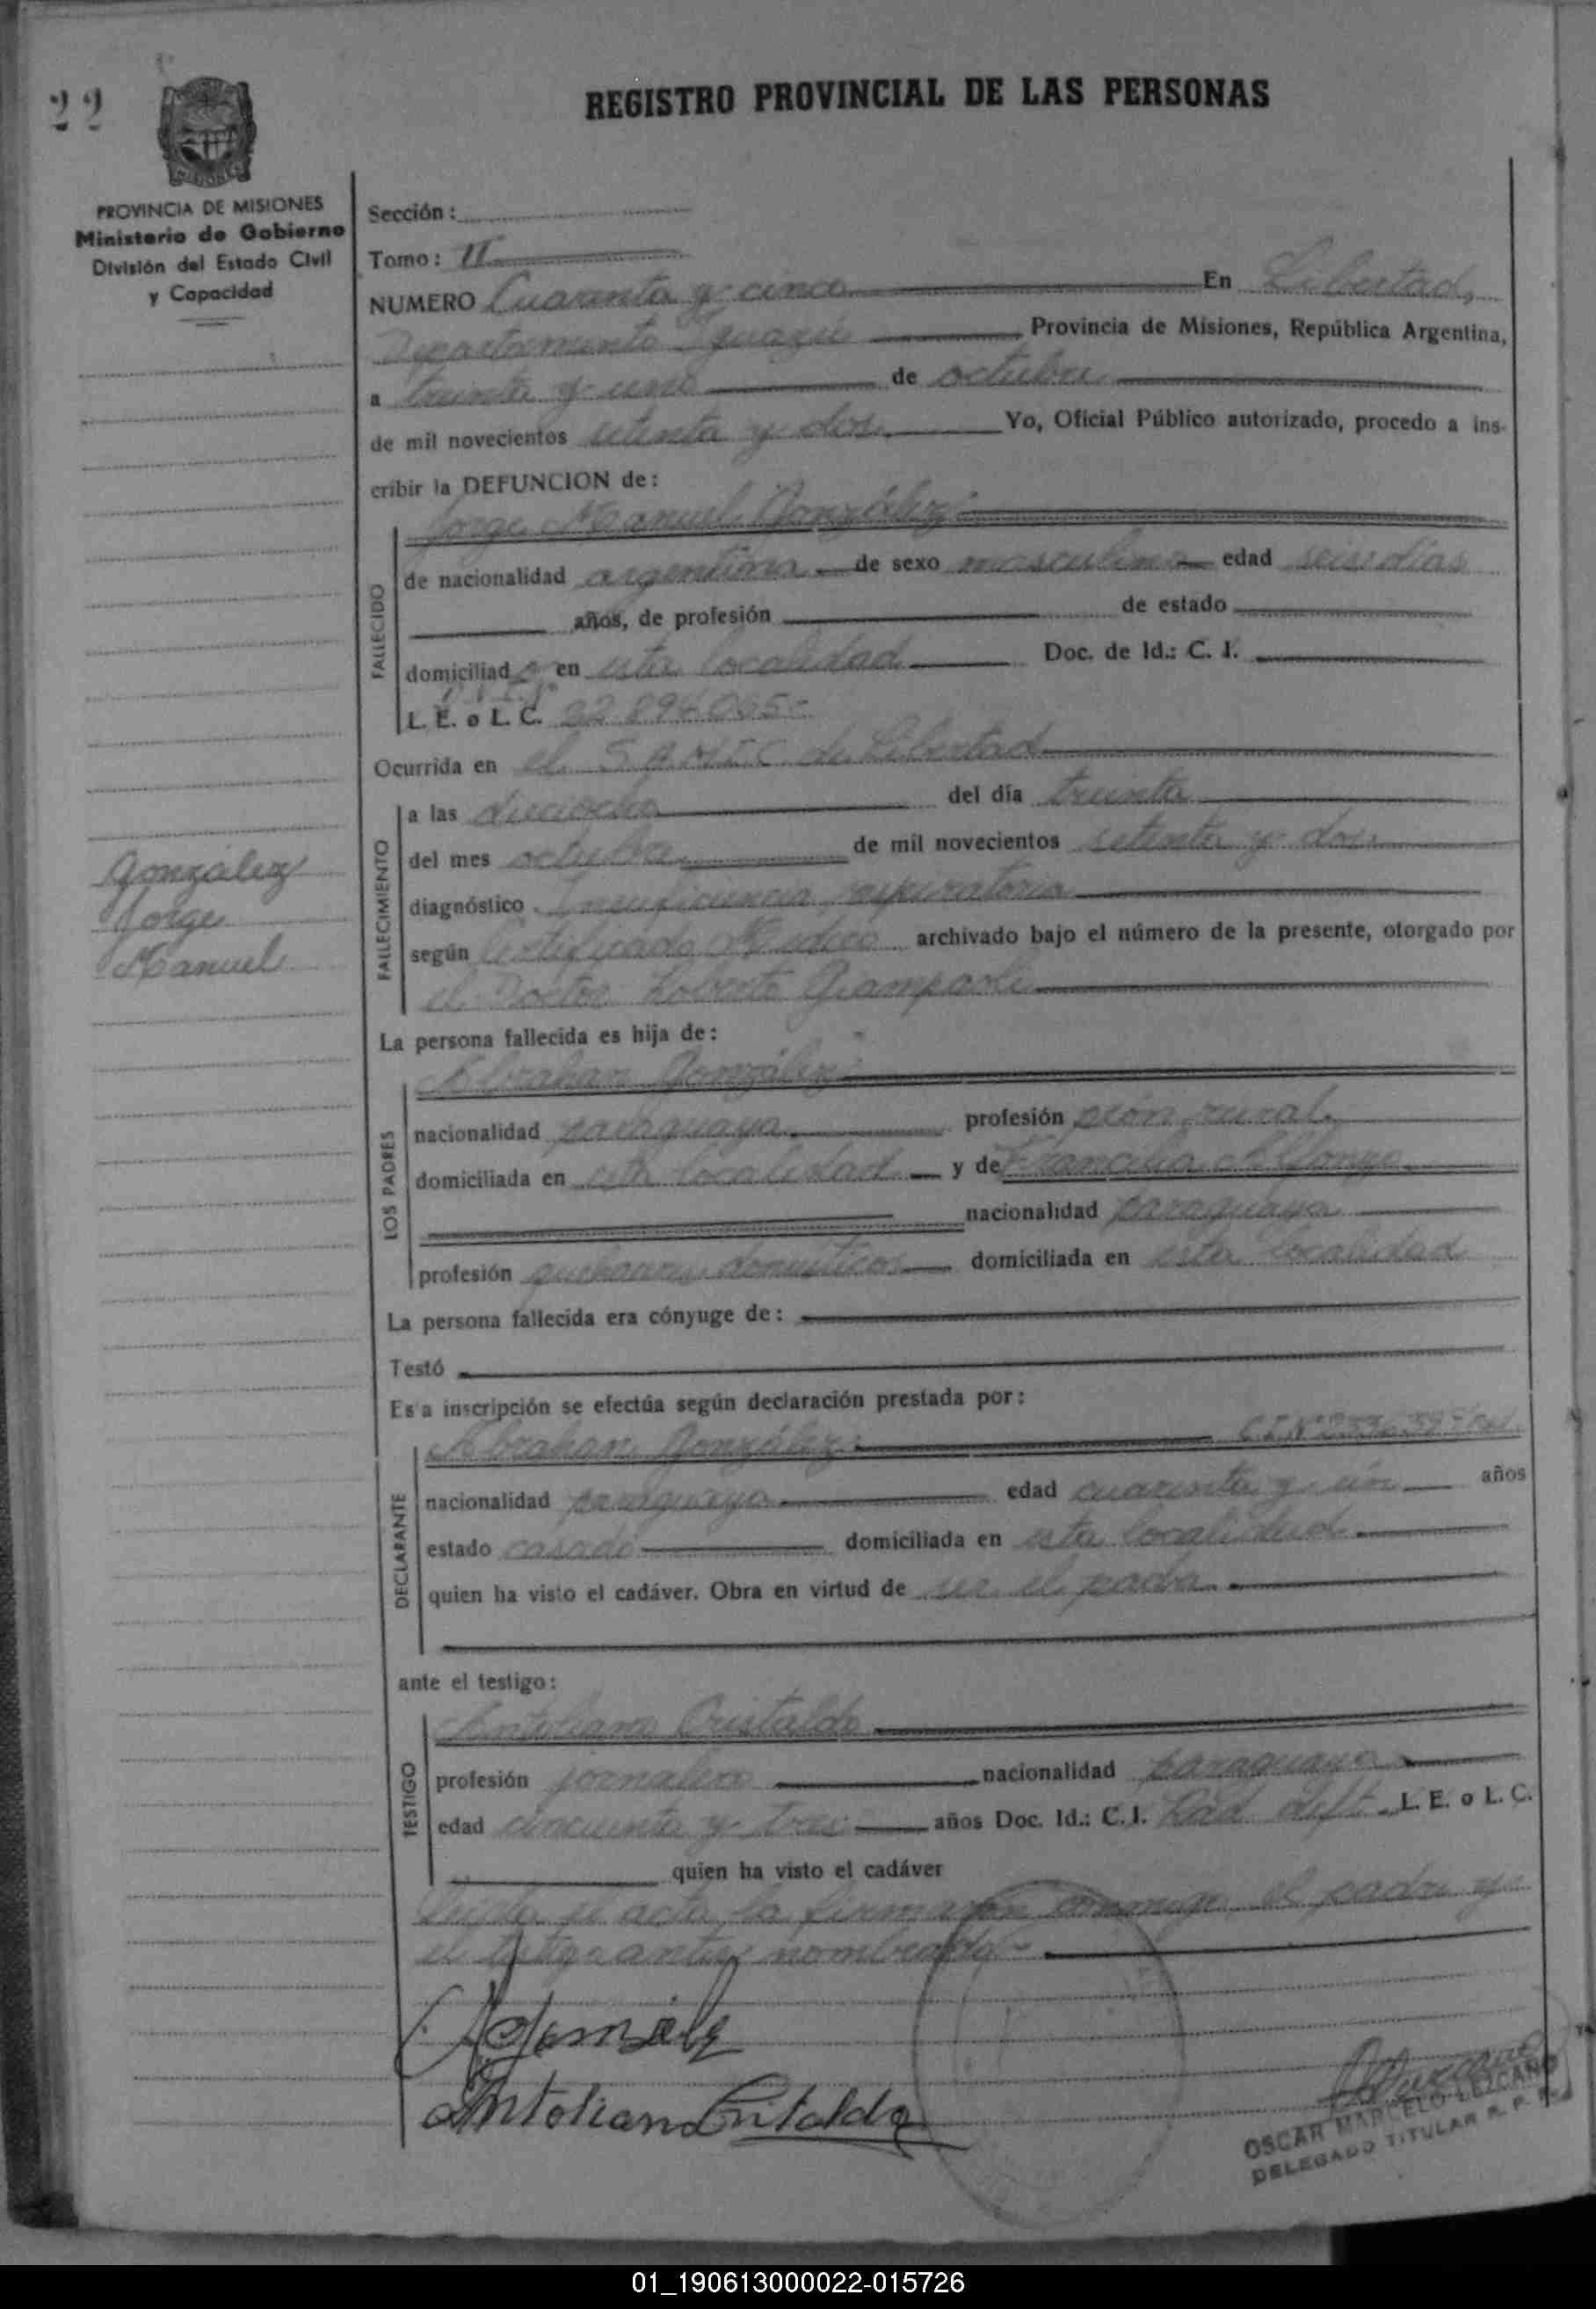 22
REGISTRO PROVINCIAL DE LAS PERSONAS
PROVINCIA DE MISIONES
Ministerio de Gobierno
División del Estado Civil
y Capacidad
Sección:
Tomo: II
NUMERO Cuarenta y cinco En Libertad,
Departamento Iguazú Provincia de Misiones, República Argentina,
a treinta y uno de octubre
de mil novecientos setenta y dos Yo, Oficial Público autorizado, procedo a ins-
cribir la DEFUNCION de:
Jorge Manuel González
FALLECIDO
de nacionalidad argentina de sexo masculino edad seis días
años, de profesión de estado
domiciliado en esta localidad Doc. de Id.: C. I.
L. E. o L. C.
Ocurrida en el S.A.M.I.C. de Libertad
FALLECIMIENTO
a las dieciocho del día treinta
del mes octubre de mil novecientos setenta y dos
diagnóstico Insuficiencia respiratoria
según Certificado Médico archivado bajo el número de la presente, otorgado por
el Doctor Roberto Giampaoli
González
Jorge
Manuel
La persona fallecida es hija de:
LOS PADRES
Abrahan González
nacionalidad paraguaya profesión peón rural
domiciliada en esta localidad y de Francilia Alfonzo
nacionalidad paraguaya
profesión quehaceres domésticos domiciliada en esta localidad
La persona fallecida era cónyuge de:
Testó
Es a inscripción se efectúa según declaración prestada por:
DECLARANTE
Abrahan González C.I.Nº
nacionalidad paraguaya edad cuarenta y un años
estado casado domiciliada en esta localidad
quien ha visto el cadáver. Obra en virtud de ser el padre
ante el testigo:
TESTIGO
Antoliano Cristaldo
profesión jornalero nacionalidad paraguaya
edad cincuenta y tres años Doc. Id.: C. I. L. E. o L. C.
quien ha visto el cadáver
Leída el acta, la firmaron conmigo, el padre y
el testigo antes nombrado
AGonzálz
Antoliano Critaldo
OSCAR MARCELO LEZCANO
DELEGADO TITULAR R. P. P.
01_190613000022-015726